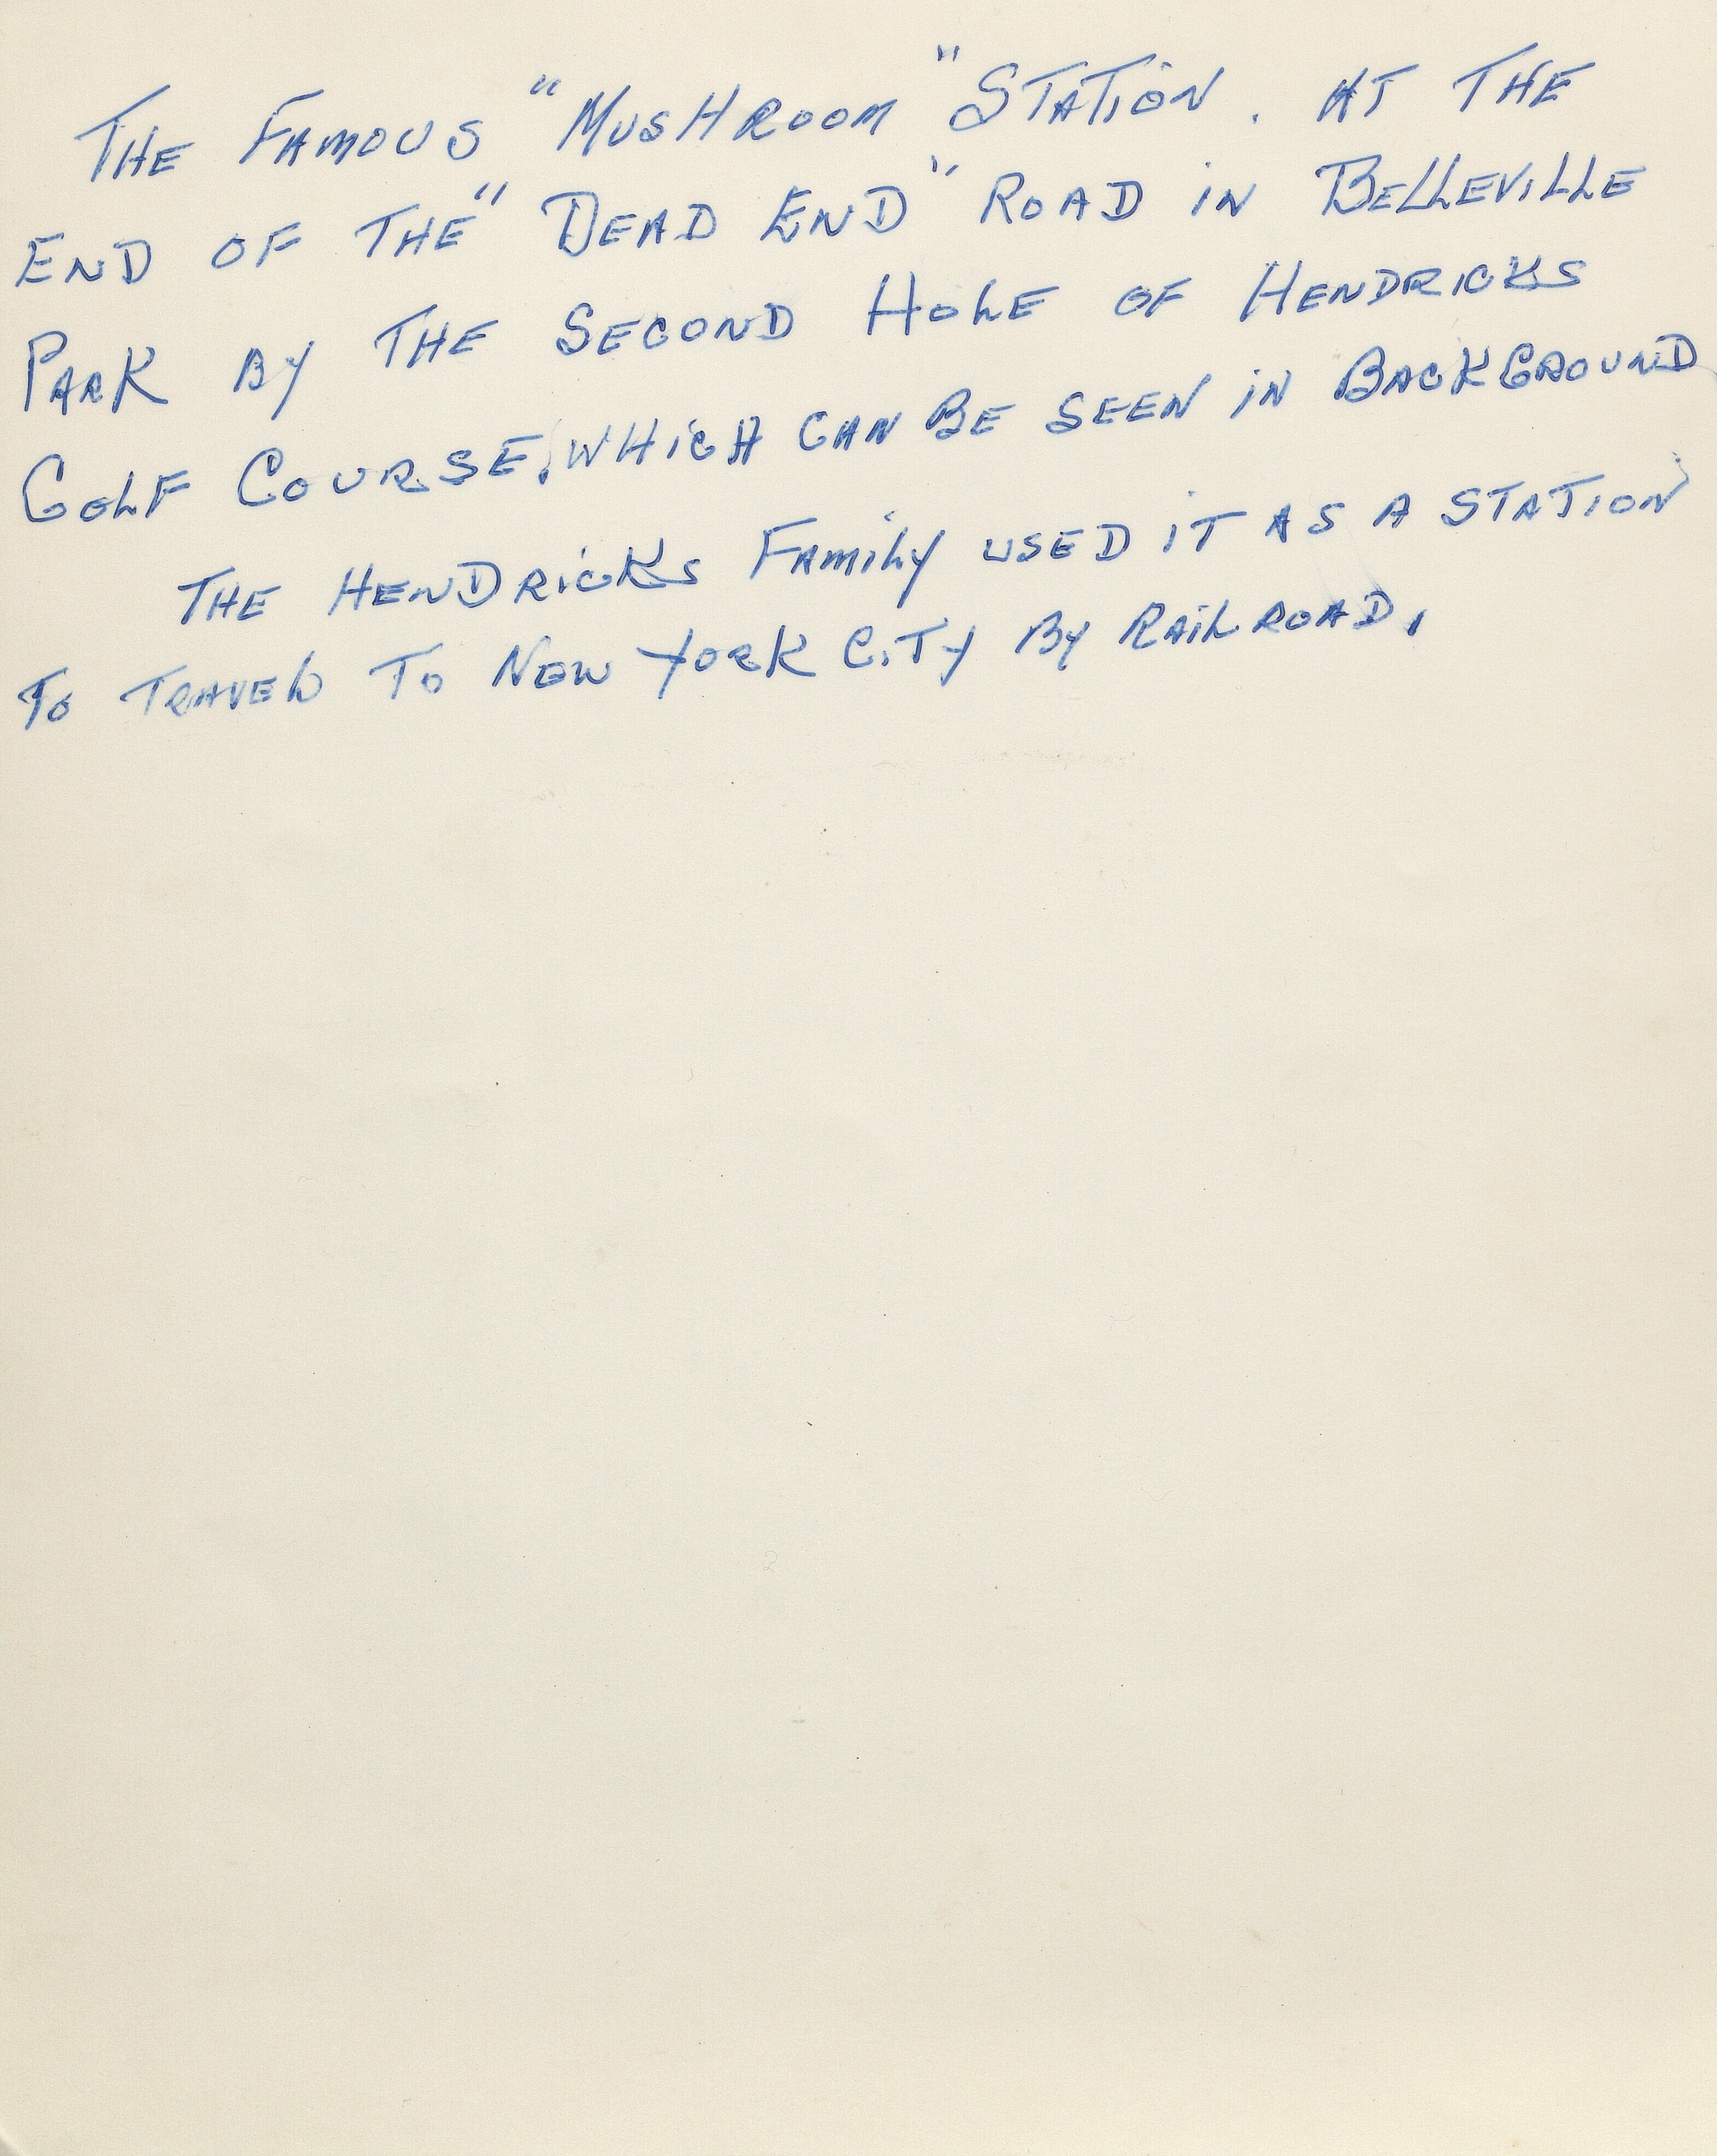 THE FAMOUS "MUSHROOM" STATION. AT THE
END OF THE "DEAD END" ROAD IN BELLEVILLE
PARK BY THE SECOND HOLE OF HENDRICKS
GOLF COURSE, WHICH CAN BE SEEN IN BACKGROUND
THE HENDRICKS FAMILY USED IT AS A STATION
TO TRAVEL TO NEW YORK CITY BY RAILROAD.